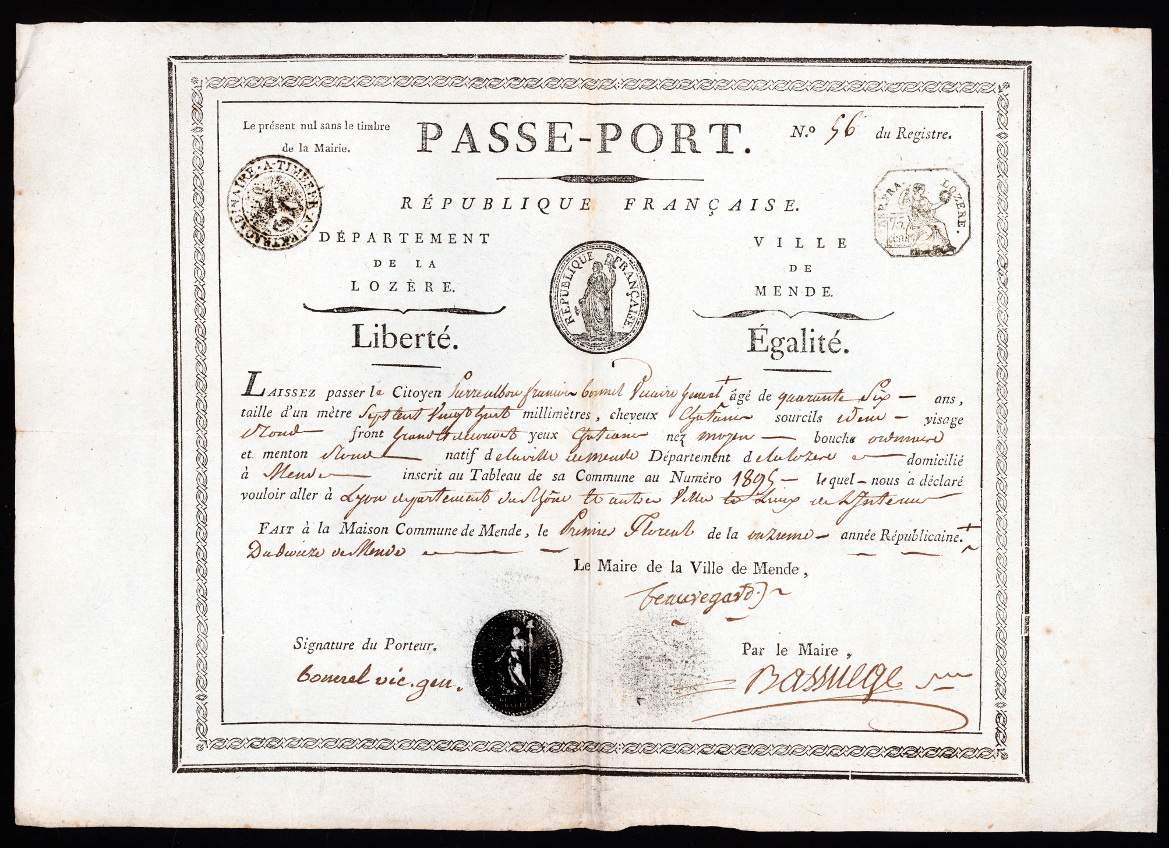 Le présent nul sans le timbre
de la Mairie.
PASSE-PORT.
N.o 56 du Registre.
RÉPUBLIQUE FRANÇAISE.
DÉPARTEMENT
DE LA
LOZÈRE.
Liberté.
RÉPUBLIQUE FRANÇAISE.
VILLE
DE
MENDE.
Égalité.
REP. FRA. LOZERE.
75 cent
LAISSEZ passer le Citoyen bonnel Vicaire general âgé de quarante Six ans,
taille d'un mètre Sept cent Vingt huit millimètres, cheveux Chatains sourcils idem visage
Rond front grand et decouvert yeux nez moyen bouche ordinaire
et menton Rond natif de la ville de mende Département de la lozere domicilié
à Mende inscrit au Tableau de sa Commune au Numéro 1895 lequel nous a déclaré
vouloir aller à Lyon departement du Rhône et autres Ville et Lieux de L'Interieur
FAIT à la Maison Commune de Mende, le Premier Floreal de la onzieme année Républicaine.
de Mende
Le Maire de la Ville de Mende,
beauregard
Signature du Porteur.
bonnel vic. gen.
Par le Maire,